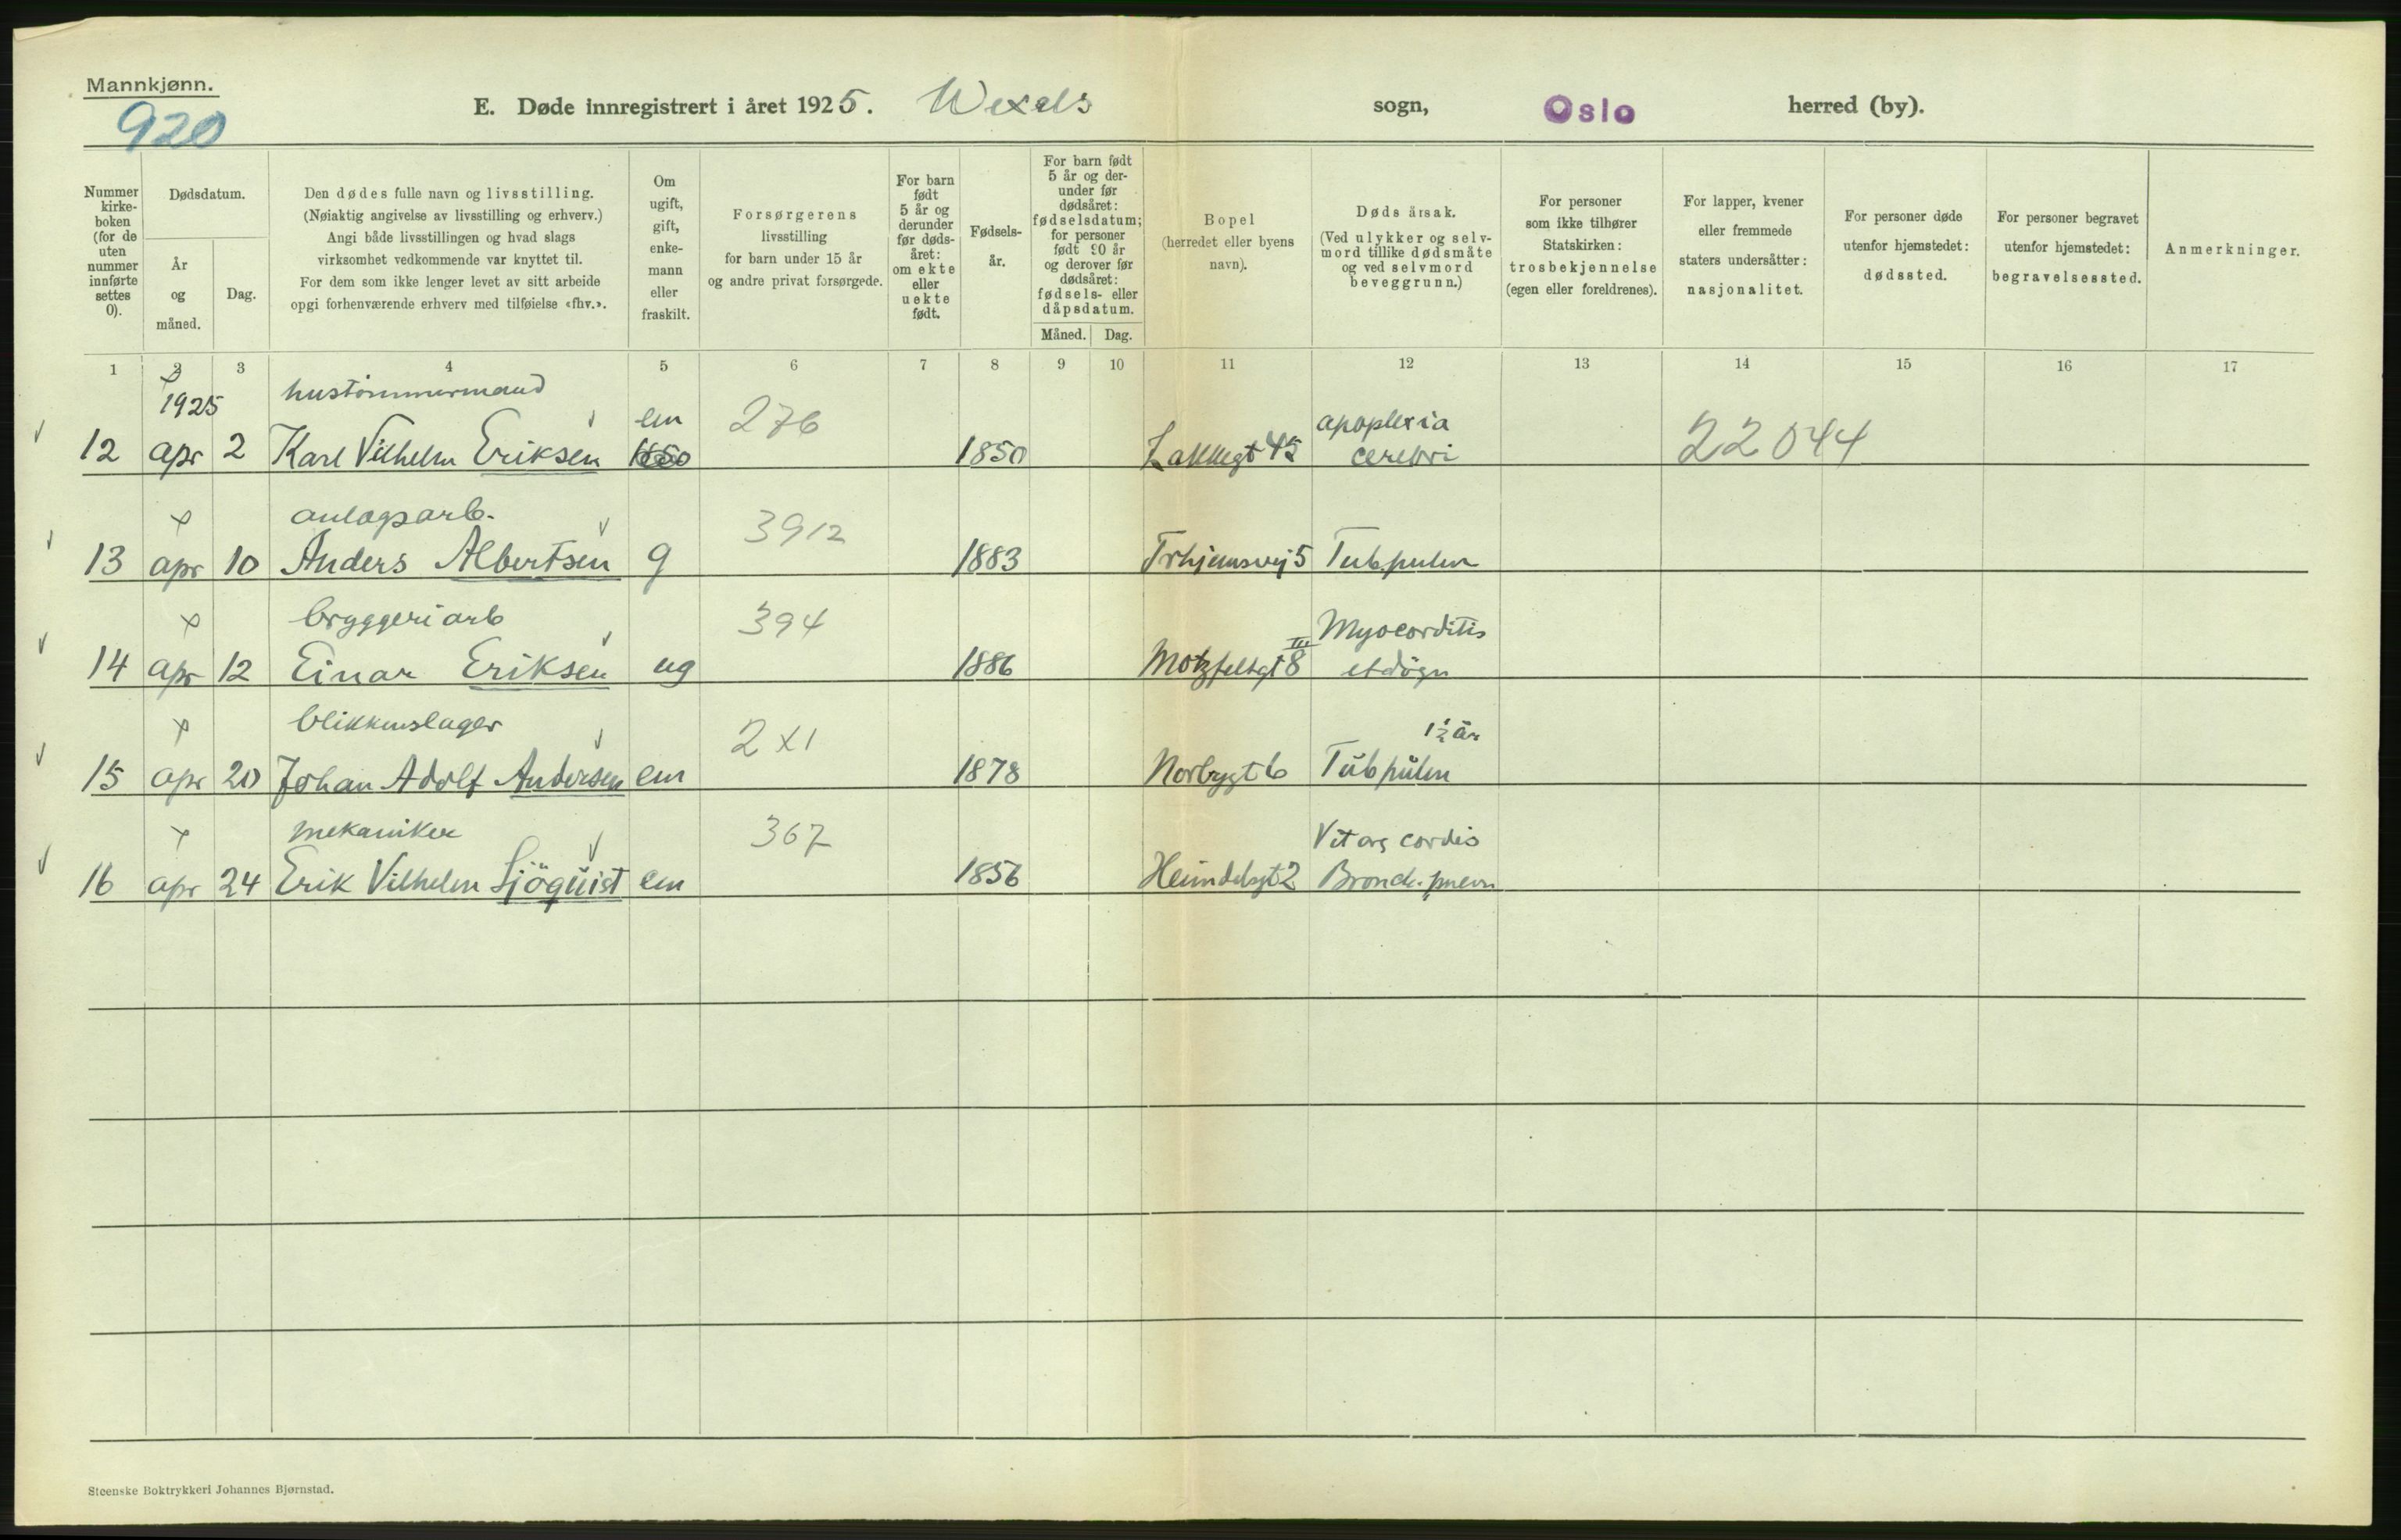 Mannkjønn.
920
E. Døde innregistrert i året 1925. Wexels sogn, Oslo herred (by).
Nummer
kirke-
boken
(for de
uten
nummer
innførte
settes
0).
Dødsdatum.
År
og
måned.
Dag.
Den dødes fulle navn og livsstilling.
(Nøiaktig angivelse av livsstilling og erhverv.)
Angi både livsstillingen og hvad slags
virksomhet vedkommende var knyttet til.
For dem som ikke lenger levet av sitt arbeide
opgi forhenværende erhverv med tilføielse «fhv.».
Om
ugift,
gift,
enke-
mann
eller
fraskilt.
Forsørgerens
livsstilling
for barn under 15 år
og andre privat forsørgede.
For barn
født
5 år og
derunder
før døds-
året:
om ekte
eller
uekte
født.
Fødsels-
år.
For barn født
5 år og der-
under før
dødsåret:
fødselsdatum;
for personer
født 90 år
og derover før
dødsåret:
fødsels- eller
dåpsdatum.
Måned. Dag.
Bopel
(herredet eller byens
navn).
Dødsårsak.
(Ved ulykker og selv-
mord tillike dødsmåte
og ved selvmord
beveggrunn.)
For personer
som ikke tilhører
Statskirken:
trosbekjennelse
(egen eller foreldrenes).
For lapper, kvener
eller fremmede
staters undersåtter:
nasjonalitet.
For personer døde
utenfor hjemstedet:
dødssted.
For personer begravet
utenfor hjemstedet:
begravelsessted.
Anmerkninger.
1 2 3 4 5 6 7 8 9 10 11 12 13 14 15 16 17
1925 hustömmermand em 276 apoplexia 22044
12 apr 2 Karl Vilhelm Eriksen 1850 1850 Lakkegt 45 cerebri
anlægsarb. 3912
13 apr 10 Anders Albertsen g 1883 Trhjemsvej 5 Tub. pulm
bryggeriarb 394 III Myocarditis
14 apr 12 Einar Eriksen ug 1886 Motzfeltgt 8
blikkenslager 2X1 1½ år
15 apr 20 Johan Adolf Andersen em 1878 Norbygt 6 Tub pulm
mekaniker 367 Vit org cordis
16 apr 24 Erik Vilhelm Sjöquist em 1856 Heimdalsgt 2 Bronch. pnevm
Steenske Boktrykkeri Johannes Bjørnstad.